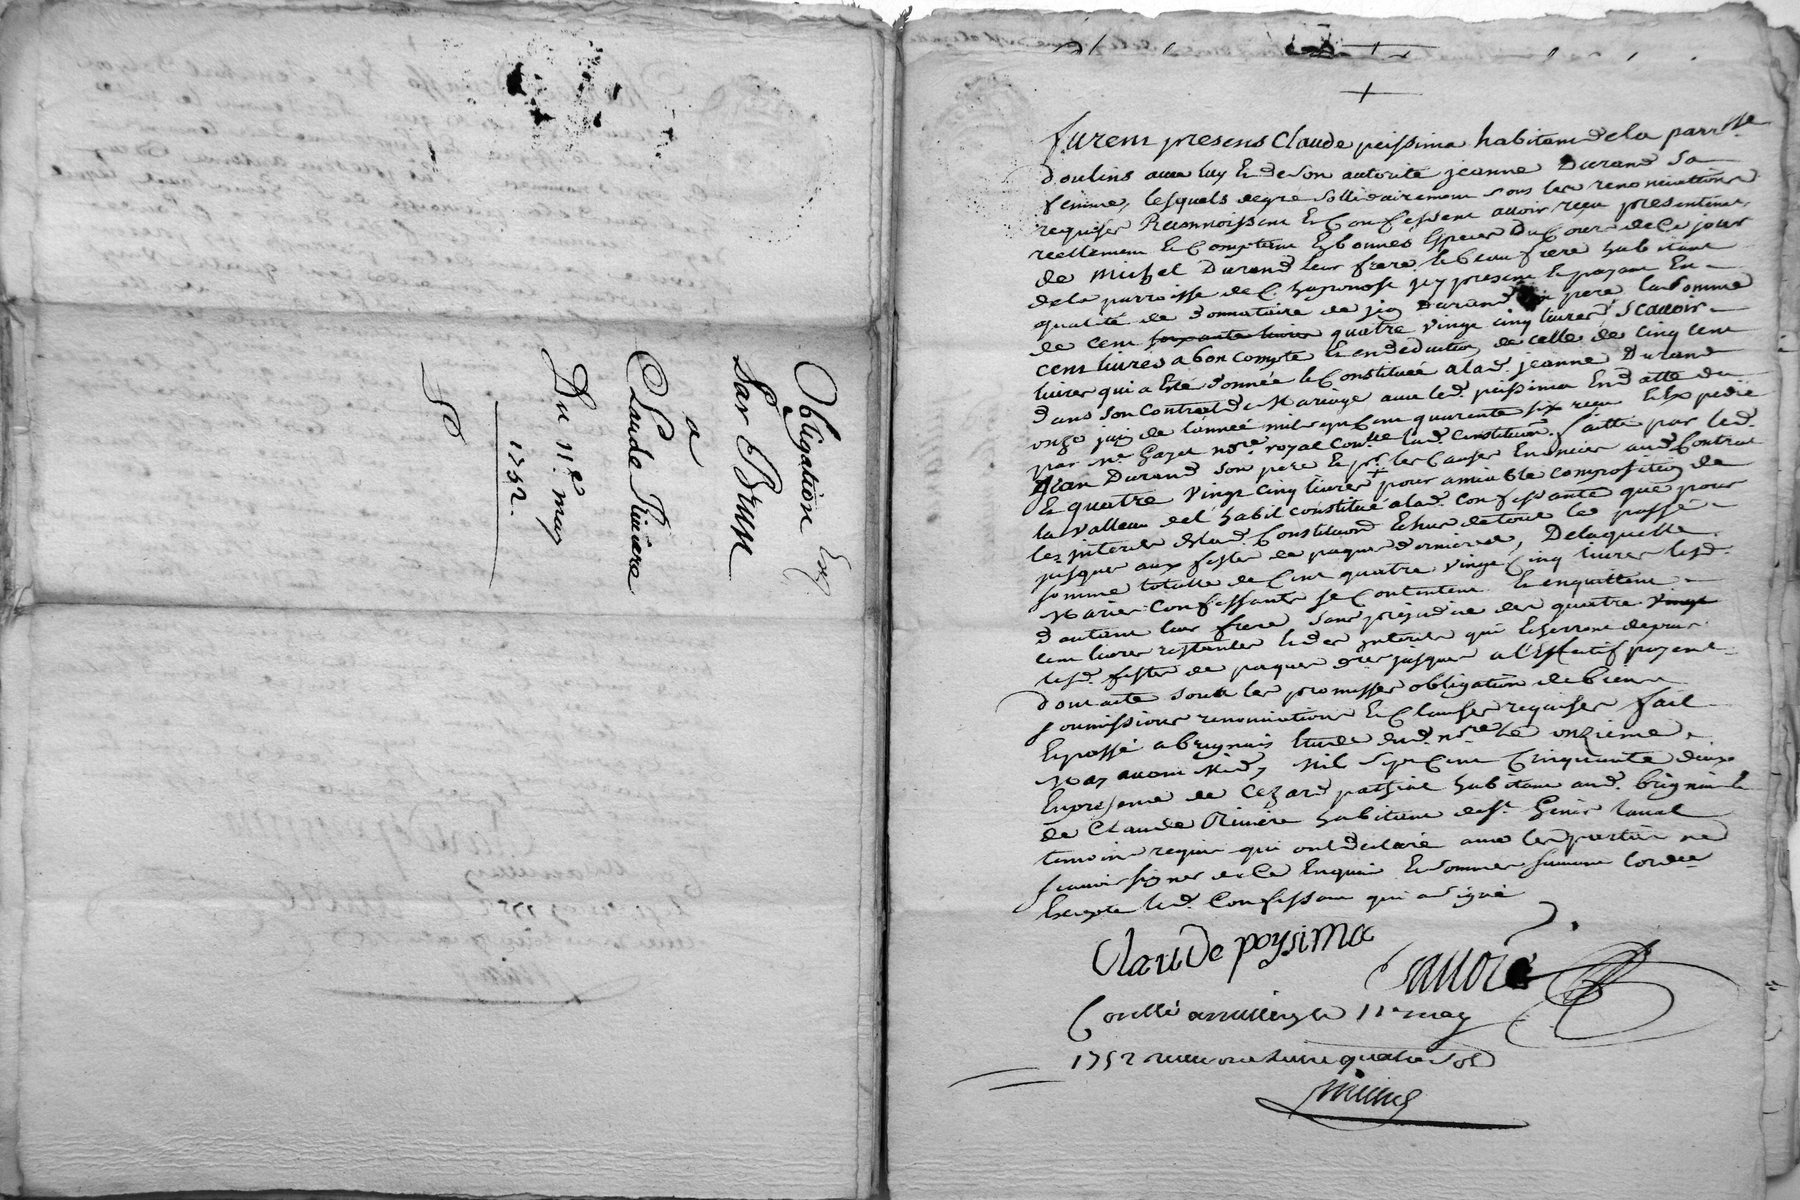 Obligation Exp
Par Brun
a
Claude Riviere
Du 11e may
1752
furent presens Claude peissima habitant de la parroisse
doulins avec luy et de son autorité jeanne Durand sa
femme, lesquels de gré sollidairement sous les renonciations
requises Reconnoissent et Confessent avoir reçu presentement
reellement et Comptant en bonnes Especes du Cours de ce jour
de Michel Durand leur frere et beau frere habitant
de la parroisse de Chaponost icy present et payant En
qualité de donnataire de jean Durand son pere la somme
de cent soixante livres quatre vingt cinq livres Scavoir
cent livres a bon compte et en deduction de celle de cinq cent
livres qui a Eté donnée et Constituée a lad. jeanne Durand
dans son Contract de Mariage avec led. peissima En datte du
onze de l'année mil sept cent quarante six reçu et Expedié
par Me Gayet nore royal Contenant lad. Constitution faitte par led.
jean Durand son pere et pr. les Causes Enoncées aud. Contrat
et quatre vingt cinq livres pour amiable composition de
la valleur de l'habit constitué a lad. confessante que pour
les interets de lad. Constitution Echus de tout le passé
jusques aux festes de paques dernieres, De laquelle
somme totalle de Cent quatre vingt Cinq livres lesd.
Mariés Confessants se Contentent et en quittent
d'autant leur frere sans prejudice des quatre vingt
cent livres restantes et des interets qui Echerront depuis
lesd. festes de paques dres jusques a l'Effectif payement
dont acte sous les promesses obligation de biens
soumissions renonciations et Clauses requises fait
et passé a brignais Etude dud. nore le onzieme
May avant Midy Mil Sept Cent Cinquante deux
En presence de Cezard habitant aud. brignais et
de Claude Riviere habitant de St Genis laval
temoins requis qui ont declaré avec les parties ne
scavoir signer de ce Enquis Et sommés suivant lord.ce
Excepté led. Confessant qui a signé
Claude peysima
Conllé 11e may
1752 reçu une livre quatre sols